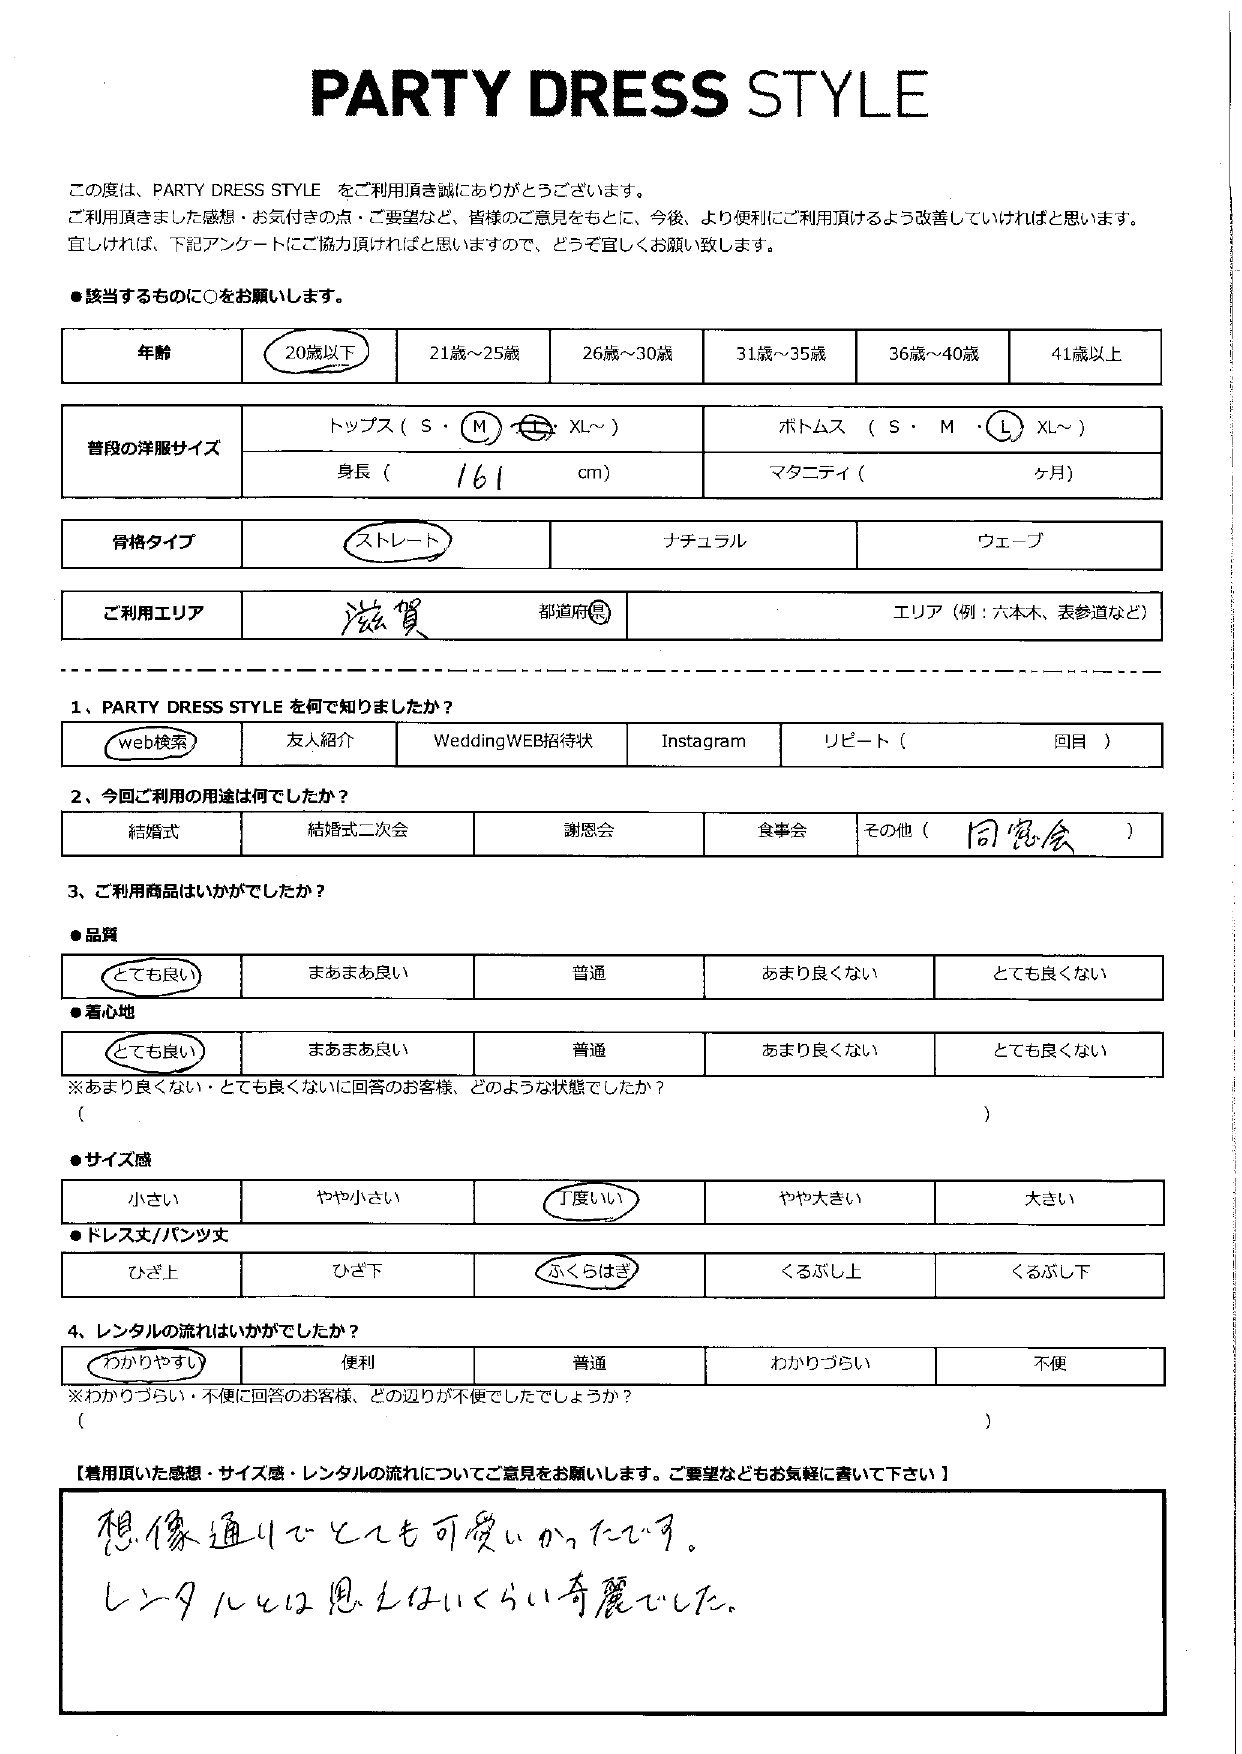 PARTY DRESS STYLE
この度は、PARTY DRESS STYLE をご利用頂き誠にありがとうございます。
ご利用頂きました感想・お気付きの点・ご要望など、皆様のご意見をもとに、今後、より便利にご利用頂けるよう改善していければと思います。
宜しければ、下記アンケートにご協力頂ければと思いますので、どうぞ宜しくお願い致します。
●該当するものに○をお願いします。
年齢 20歳以下 21歳～25歳 26歳～30歳 31歳～35歳 36歳～40歳 41歳以上
普段の洋服サイズ トップス ( S ・ M ・ L ・ XL～ ) ボトムス ( S ・ M ・ L XL～ )
身長 ( 161 cm) マタニティ ( ヶ月)
骨格タイプ ストレート ナチュラル ウェーブ
ご利用エリア 滋賀 都道府県 エリア（例：六本木、表参道など）
1、PARTY DRESS STYLE を何で知りましたか？
web検索 友人紹介 WeddingWEB招待状 Instagram リピート ( 回目 )
2、今回ご利用の用途は何でしたか？
結婚式 結婚式二次会 謝恩会 食事会 その他 ( 同窓会 )
3、ご利用商品はいかがでしたか？
●品質
とても良い まあまあ良い 普通 あまり良くない とても良くない
●着心地
とても良い まあまあ良い 普通 あまり良くない とても良くない
※あまり良くない・とても良くないに回答のお客様、どのような状態でしたか？
( )
●サイズ感
小さい やや小さい 丁度いい やや大きい 大きい
●ドレス丈/パンツ丈
ひざ上 ひざ下 ふくらはぎ くるぶし上 くるぶし下
4、レンタルの流れはいかがでしたか？
わかりやすい 便利 普通 わかりづらい 不便
※わかりづらい・不便に回答のお客様、どの辺りが不便でしたでしょうか？
( )
【着用頂いた感想・サイズ感・レンタルの流れについてご意見をお願いします。ご要望などもお気軽に書いて下さい 】
想像通りでとても可愛いかったです。
レンタルとは思えないくらい奇麗でした。